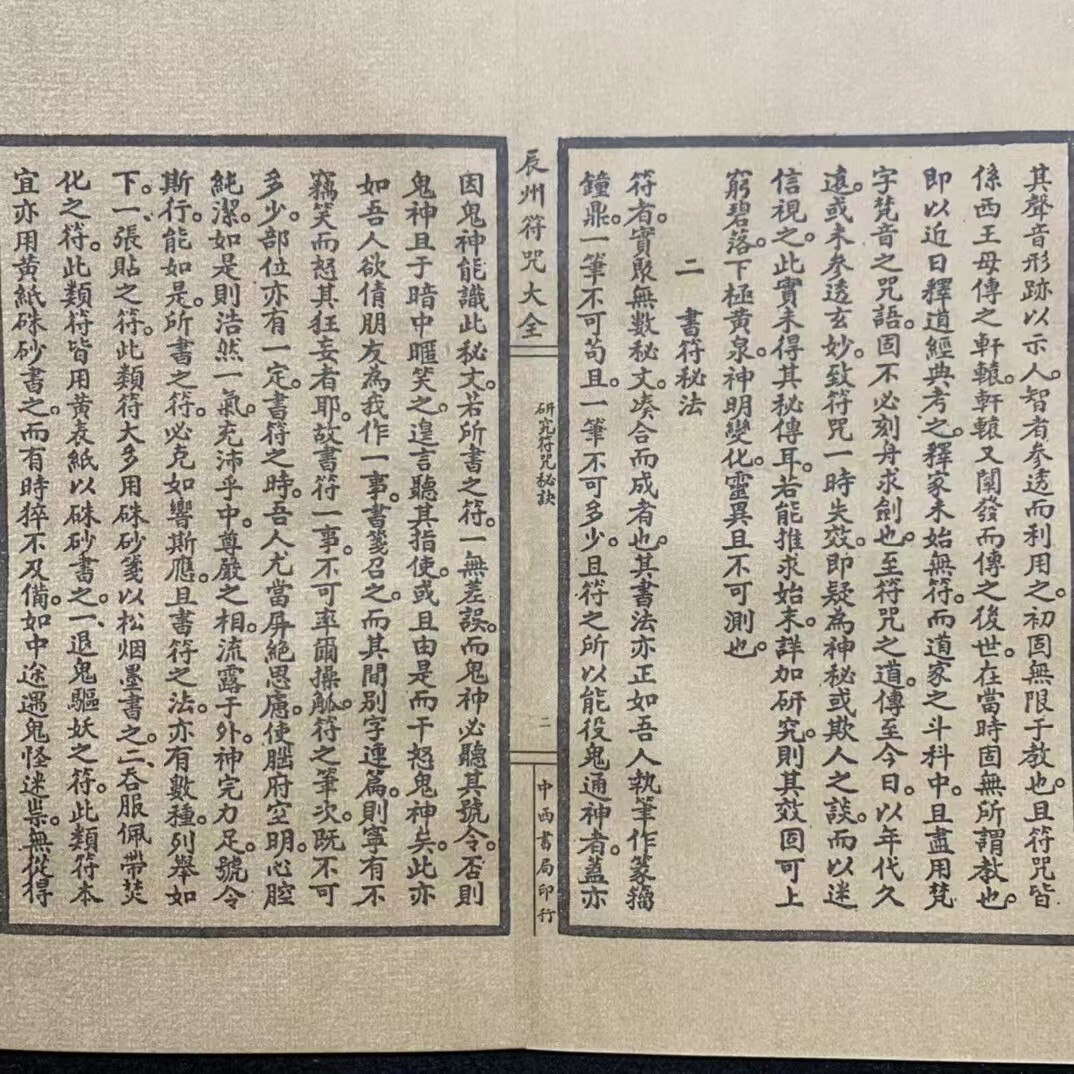 其聲音形跡以示人。智者參透而利用之。初固無限于教也。且符咒皆
係西王母傳之軒轅。軒轅又闡發而傳之後世。在當時固無所謂教也。
即以近日釋道經典考之。釋家未始無符。而道家之斗科中。且盡用梵
字梵音之咒語。固不必刻舟求劍也。至符咒之道。傳至今日。以年代久
遠。或未參透玄妙。致符咒一時失效。即疑為神秘或欺人之談。而以迷
信視之。此實未得其秘傳耳。若能推求始末。詳加研究。則其效固可上
窮碧落。下極黃泉。神明變化。靈異且不可測也。
二 書符秘法
符者。實聚無數秘文。湊合而成者也。其書法亦正如吾人執筆作篆籀
鐘鼎。一筆不可苟。且一筆不可多少。且符之所以能役鬼通神者。蓋亦
辰州符咒大全
研究符咒秘訣
二
中西書局印行
因鬼神能識此秘文。若所書之符。一無差誤。而鬼神必聽其號令。否則
鬼神且于暗中匿笑之。遑言聽其指使。或且由是而干怒鬼神矣。此亦
如吾人欲倩朋友為我作一事。書箋召之。而其間別字連篇。則寧有不
竊笑而怒其狂妄者耶。故書符一事。不可率爾操觚。符之筆次。既不可
多少。部位亦有一定。書符之時。吾人尤當屏絕思慮。使腦府空明。心腔
純潔。如是則浩然一氣。充沛乎中。尊嚴之相。流露于外。神完力足。號令
斯行。能如是。所書之符。必克如響斯應。且書符之法。亦有數種。列舉如
下。一、張貼之符。此類符大多用硃砂箋以松烟墨書之。二、吞服佩帶焚
化之符。此類符皆用黃表紙以硃砂書之。一、退鬼驅妖之符。此類符本
宜亦用黃紙硃砂書之。而有時猝不及備。如中途遇鬼怪迷祟。無從得